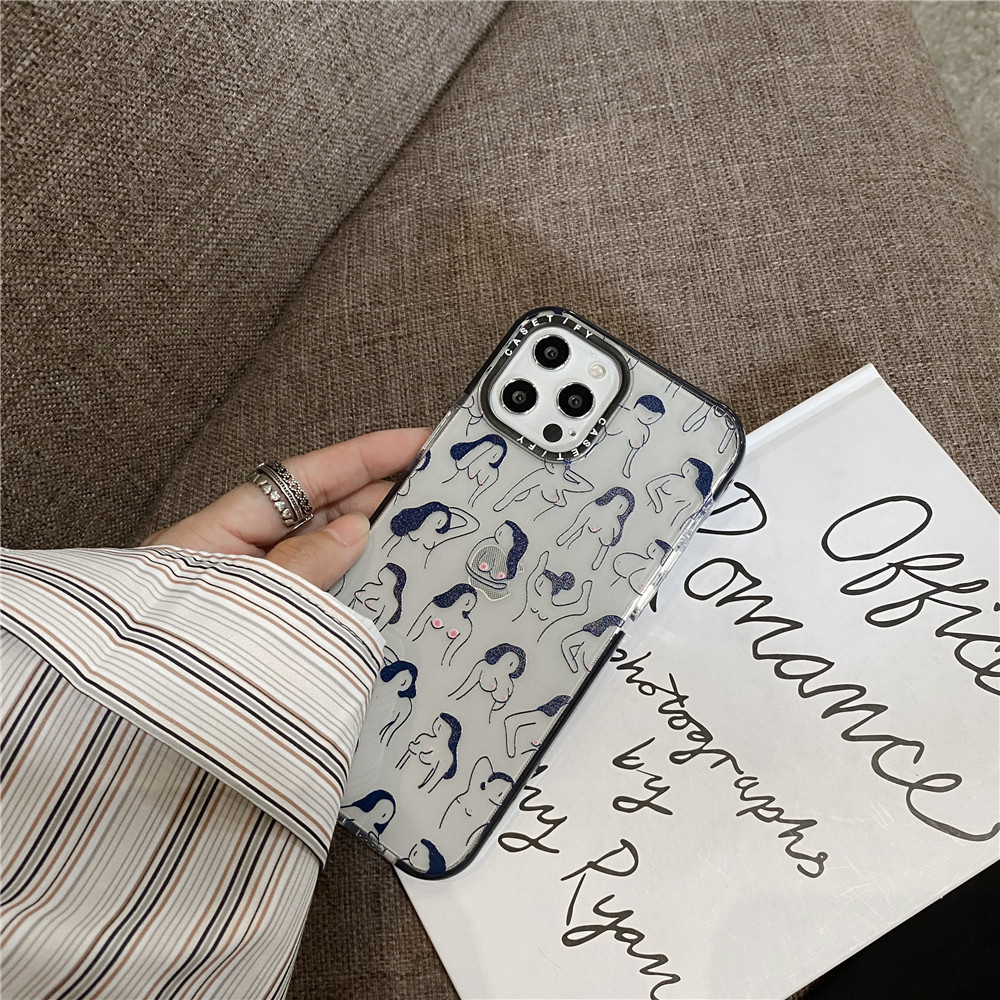 CASETIFY
CASETIFY
Office
Romance
photographs
by
Ryan